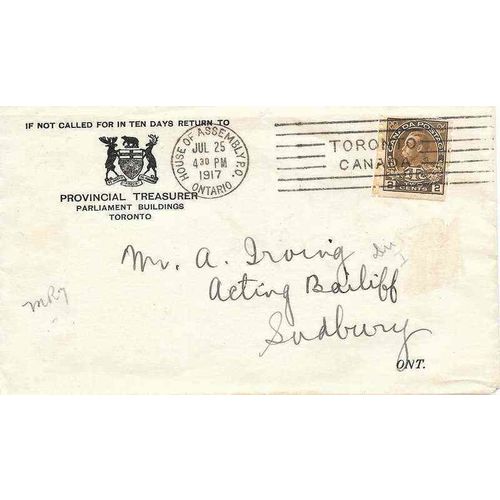 IF NOT CALLED FOR IN TEN DAYS RETURN TO
PROVINCIAL TREASURER
PARLIAMENT BUILDINGS
TORONTO
HOUSE OF ASSEMBLY P.O.
JUL 25
4 30 PM
1917
ONTARIO
TORONTO
CANADA
CANADA POSTAGE
2 CENTS 2
Mr. A. Irving
Acting Bailiff
Sudbury
ONT.
MR7